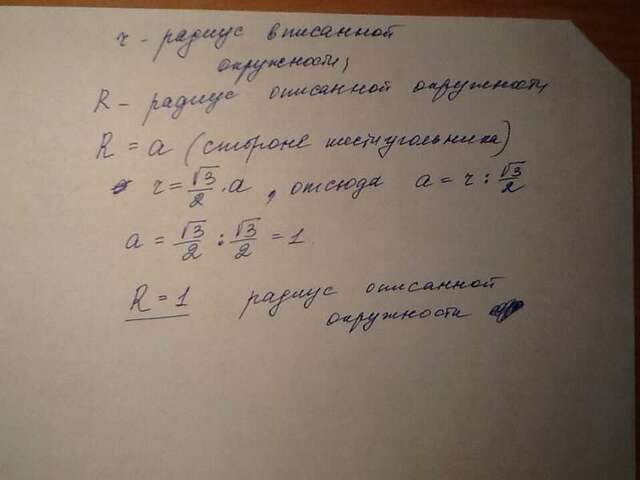 r - радиус вписанной
окружности;
R - радиус описанной окружности
R = a (стороне шестиугольника)
r = √3/2 · a, отсюда a = r : √3/2
a = √3/2 : √3/2 = 1
R = 1 радиус описанной
окружности